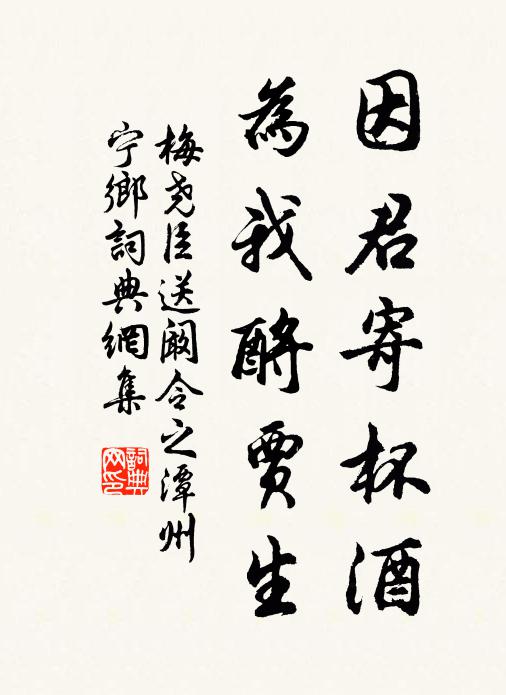 因君寄杯酒
為我酹賈生
梅尧臣送阚令之潭州
宁鄉詞典網集
詞典网印